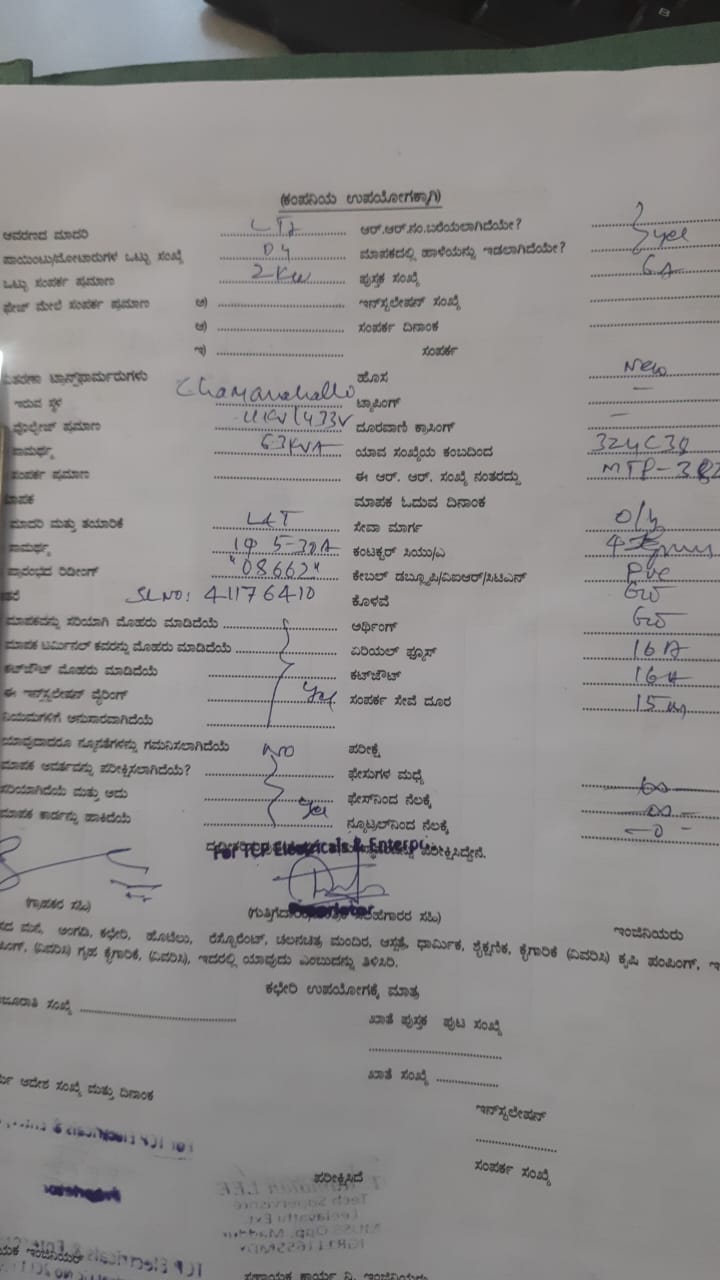 (ಕಂಪನಿಯ ಉಪಯೋಗಕ್ಕಾಗಿ)
ಆವರಣದ ಮಾದರಿ LT2 ಆರ್.ಆರ್.ಸಂ.ಬರೆಯಲಾಗಿದೆಯೇ?
ಪಾಯಿಂಟು/ಮೋಟಾರುಗಳ ಒಟ್ಟು ಸಂಖ್ಯೆ 04 ಮಾಪಕದಲ್ಲಿ ಹಾಳೆಯನ್ನು ಇಡಲಾಗಿದೆಯೇ? yes
ಒಟ್ಟು ಸಂಪರ್ಕ ಪ್ರಮಾಣ 2KW ಪುಸ್ತಕ ಸಂಖ್ಯೆ 6A
ಫೇಜ್ ಮೇಲೆ ಸಂಪರ್ಕ ಪ್ರಮಾಣ ಅ) ಇನ್‌ಸ್ಟಲೇಷನ್ ಸಂಖ್ಯೆ
ಆ) ಸಂಪರ್ಕ ದಿನಾಂಕ
ಇ) ಸಂಪರ್ಕ
ವಿತರಣಾ ಟ್ರಾನ್ಸ್‌ಫಾರ್ಮರುಗಳು ಹೊಸ New
ಇರುವ ಸ್ಥಳ Chamanahallo ಟ್ಯಾಪಿಂಗ್ –
ವೋಲ್ಟೇಜ್ ಪ್ರಮಾಣ 11KV/433V ದೂರವಾಣಿ ಕ್ರಾಸಿಂಗ್ –
ಸಾಮರ್ಥ್ಯ 63KVA ಯಾವ ಸಂಖ್ಯೆಯ ಕಂಬದಿಂದ
ಸಂಪರ್ಕ ಪ್ರಮಾಣ ಈ ಆರ್. ಆರ್. ಸಂಖ್ಯೆ ನಂತರದ್ದು
ಮಾಪಕ ಮಾಪಕ ಓದುವ ದಿನಾಂಕ
ಮಾದರಿ ಮತ್ತು ತಯಾರಿಕೆ L&T ಸೇವಾ ಮಾರ್ಗ O/h
ಸಾಮರ್ಥ್ಯ 1Φ 5-30A ಕಂಟಕ್ಟರ್ ಸಿಯು/ಎ
ಪ್ರಾರಂಭದ ರಿಡೀಂಗ್ "08662" ಕೇಬಲ್ ಡಬ್ಲ್ಯೂಪಿ/ವಿಐಆರ್/ಸಿಟಿಎಸ್ PVC
SL NO: 41176410 ಕೊಳವೆ
ಮಾಪಕವನ್ನು ಸರಿಯಾಗಿ ಮೊಹರು ಮಾಡಿದೆಯೆ ಆರ್ಥಿಂಗ್
ಮಾಪಕ ಟರ್ಮಿನಲ್ ಕವರನ್ನು ಮೊಹರು ಮಾಡಿದೆಯೆ ಏರಿಯಲ್ ಫ್ಯೂಸ್ 16A
ಕಟ್‌ಔಟ್ ಮೊಹರು ಮಾಡಿದೆಯೆ ಕಟ್‌ಔಟ್ 16A
ಈ ಇನ್‌ಸ್ಟಲೇಷನ್ ವೈರಿಂಗ್ Yes ಸಂಪರ್ಕ ಸೇವೆ ದೂರ 15m
ನಿಯಮಗಳಿಗೆ ಅನುಸಾರವಾಗಿದೆಯೆ
ಯಾವುದಾದರೂ ನ್ಯೂನತೆಗಳನ್ನು ಗಮನಿಸಲಾಗಿದೆಯೆ NO ಪರೀಕ್ಷೆ
ಮಾಪಕ ಆವರ್ತವನ್ನು ಪರೀಕ್ಷಿಸಲಾಗಿದೆಯೆ? ಫೇಸುಗಳ ಮಧ್ಯೆ
ಸರಿಯಾಗಿದೆಯೆ ಮತ್ತು ಅದು Yes ಫೇಸ್‌ನಿಂದ ನೆಲಕ್ಕೆ
ಮಾಪಕ ಕಾರ್ಡನ್ನು ಹಾಕಿದೆಯೆ ನ್ಯೂಟ್ರಲ್‌ನಿಂದ ನೆಲಕ್ಕೆ – 0 –
For TCP Electricals & Enterp ಪರೀಕ್ಷಿಸಿದ್ದೇನೆ.
Proprietor
(ಗ್ರಾಹಕರ ಸಹಿ) ಸಹಿ) ಇಂಜಿನಿಯರು
ಮನೆ, ಅಂಗಡಿ, ಕಛೇರಿ, ಹೊಟೆಲು, ರೆಸ್ಟೊರೆಂಟ್, ಚಲನಚಿತ್ರ ಮಂದಿರ, ಆಸ್ಪತ್ರೆ, ಧಾರ್ಮಿಕ, ಶೈಕ್ಷಣಿಕ, ಕೈಗಾರಿಕೆ (ವಿವರಿಸಿ) ಕೃಷಿ ಪಂಪಿಂಗ್,
(ವಿವರಿಸಿ) ಗೃಹ ಕೈಗಾರಿಕೆ, (ವಿವರಿಸಿ), ಇದರಲ್ಲಿ ಯಾವುದು ಎಂಬುದನ್ನು ತಿಳಿಸಿರಿ.
ಕಛೇರಿ ಉಪಯೋಗಕ್ಕೆ ಮಾತ್ರ
ಸಂಖ್ಯೆ ಖಾತೆ ಪುಸ್ತಕ ಪುಟ ಸಂಖ್ಯೆ
ಖಾತೆ ಸಂಖ್ಯೆ
ಆದೇಶ ಸಂಖ್ಯೆ ಮತ್ತು ದಿನಾಂಕ
ಇನ್‌ಸ್ಟಲೇಷನ್
ಸಂಪರ್ಕ ಸಂಖ್ಯೆ
ಪರೀಕ್ಷಿಸಿದೆ